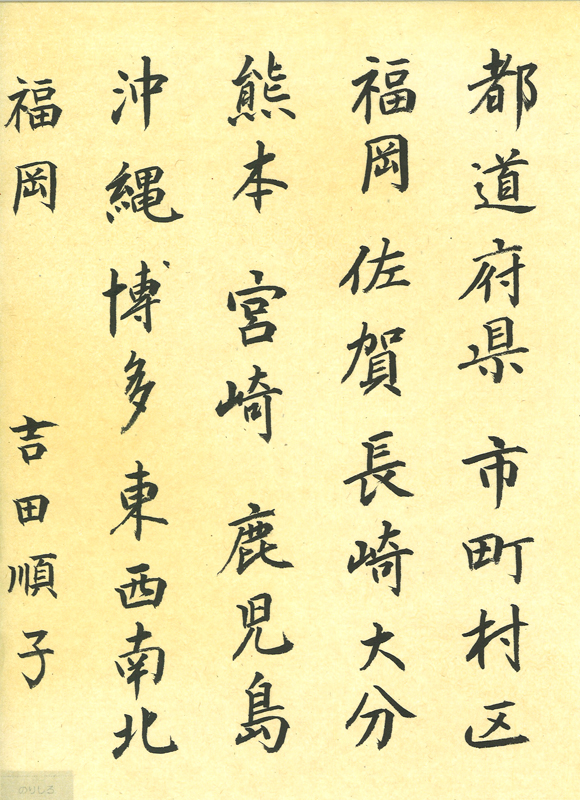 都道府県 市町村区
福岡 佐賀 長崎 大分
熊本 宮崎 鹿児島
沖縄 博多 東西南北
福岡 吉田順子
のりしろ